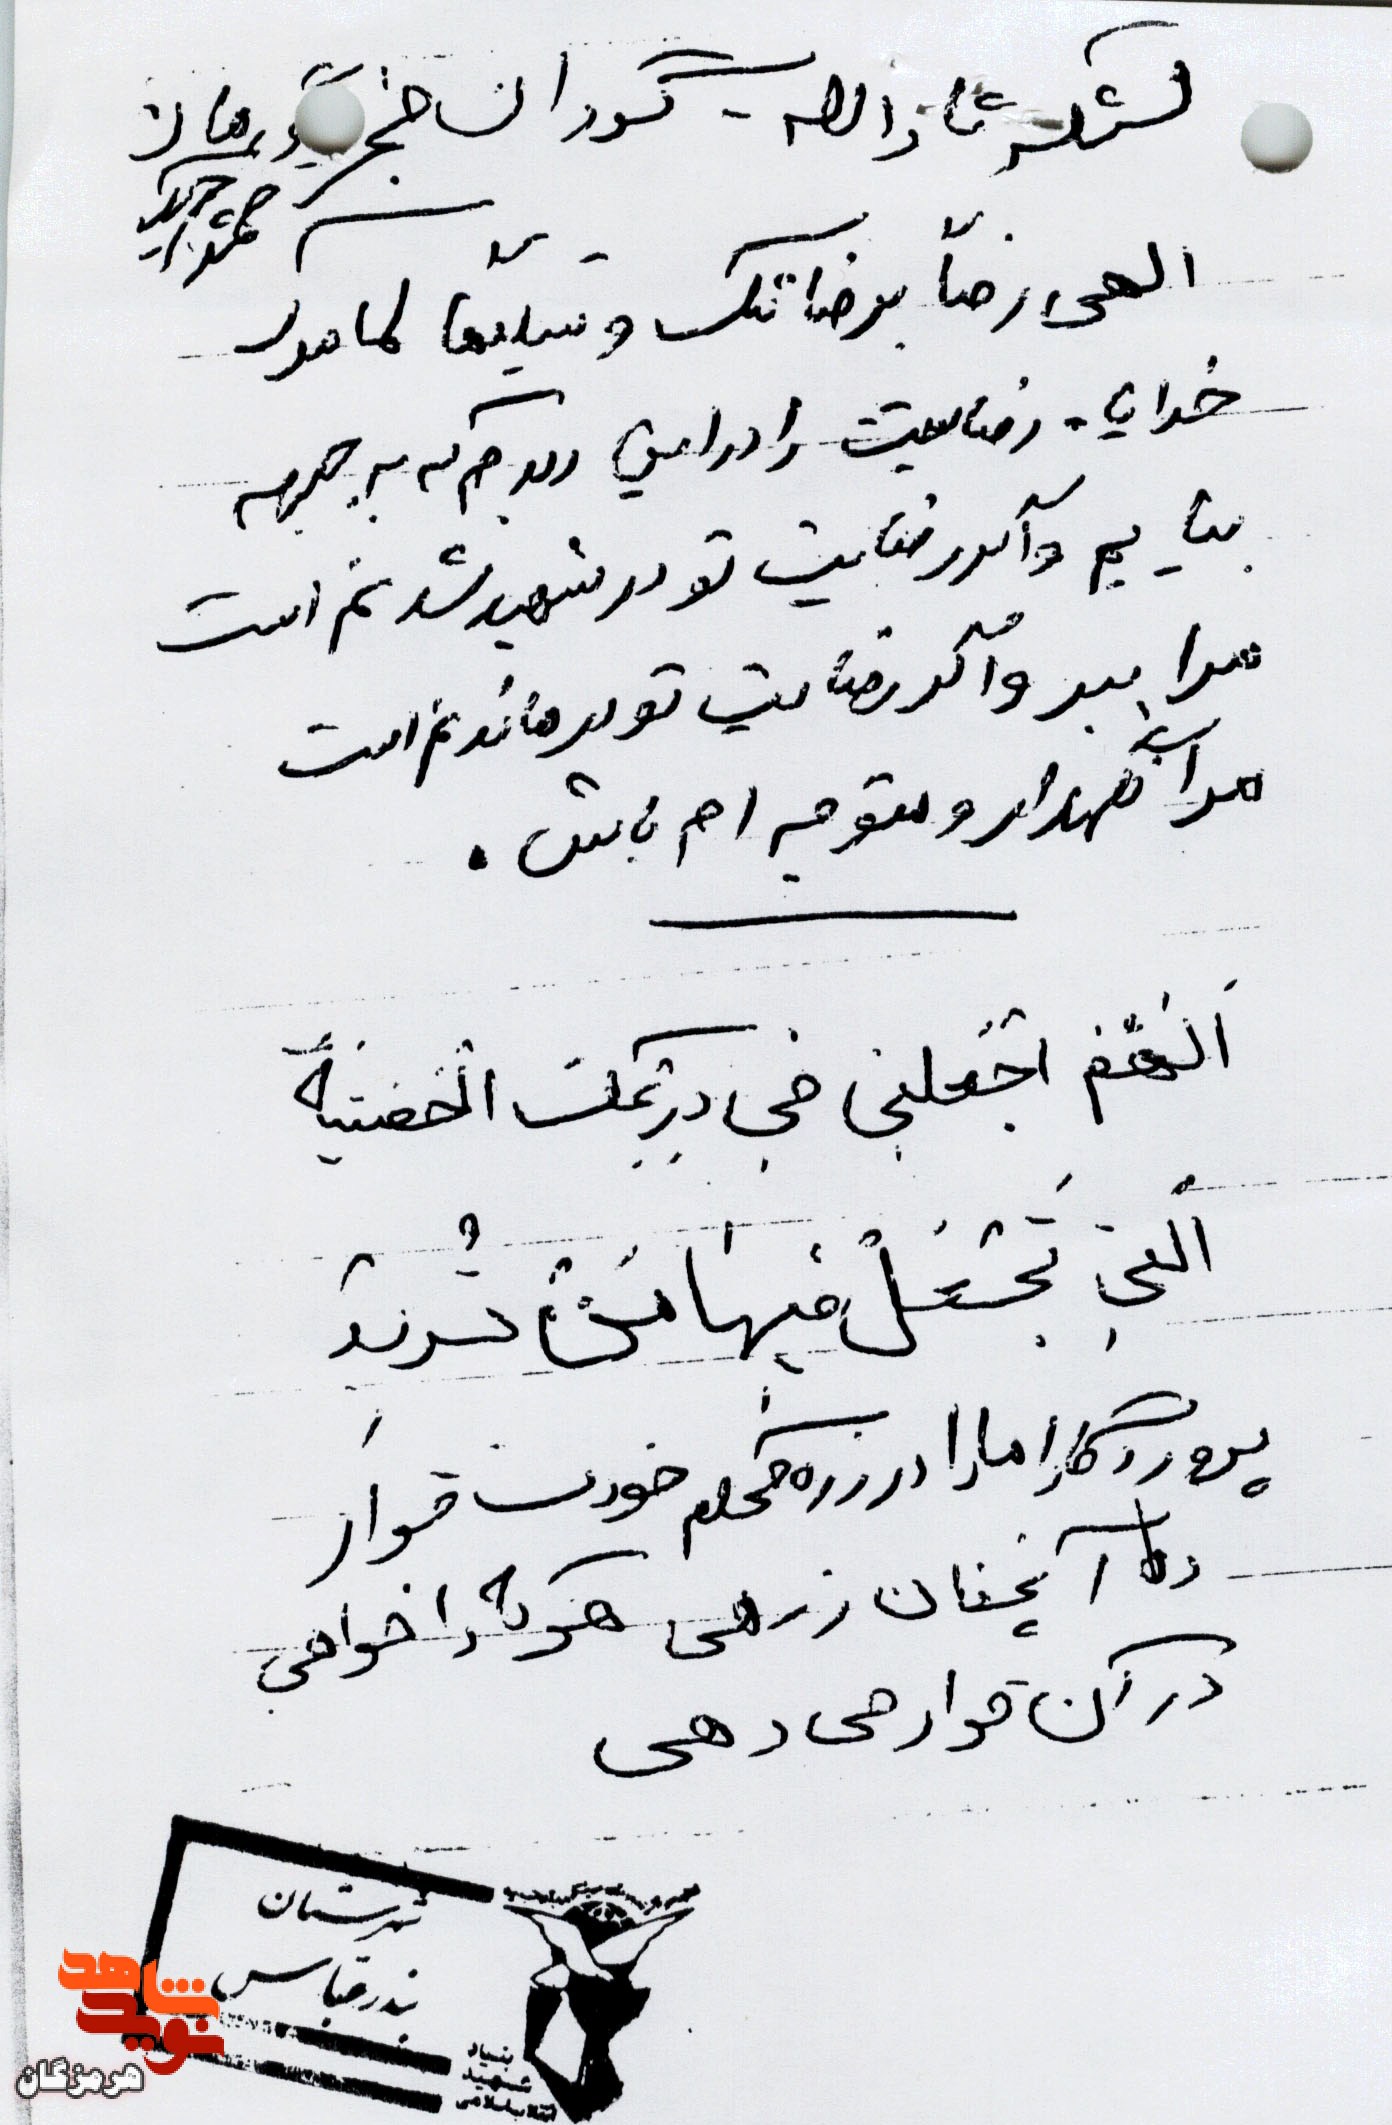 لشکر ثاراله - گردان خنجر گروهان
الهی رضاً برضائک و تسلیماً لامرک
خدایا - رضایت را در این دیدم که به جبهه
بیایم و اگر رضایت تو در شهید شدنم است
مرا ببر و اگر رضایت تو در ماندنم است
مرا نگهدار و متوجه ام باش .
اَللهُمَّ اجْعَلنی فی دِرْعِکَ الْحَصینَةِ
اَلَّتی تَجْعَلُ فیها مَنْ تُریدُ
پروردگارا ما را در زره محکم خودت قرار
ده آنچنان زرهی هرکه را خواهی
در آن قرار می دهی
شهرستان
بندرعباس
بنیاد
شهید
انقلاب اسلامی
نوید شاهد
هرمزگان